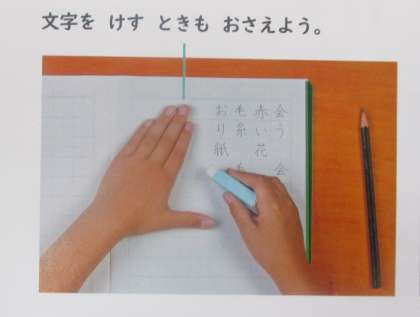 文字を けす ときも おさえよう。
会う 会
赤い花
毛糸 毛
おり紙